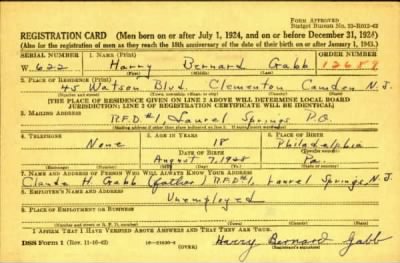 FORM APPROVED
Budget Bureau No. 33-R012-42
REGISTRATION CARD (Men born on or after July 1, 1924, and on or before December 31, 1924)
(Also for the registration of men as they reach the 18th anniversary of the date of their birth on or after January 1, 1943.)
SERIAL NUMBER 1. NAME (Print) ORDER NUMBER
W-622 Harry Bernard Gabb 12689
(First) (Middle) (Last)
2. PLACE OF RESIDENCE (Print)
45 Watson Blvd Clementon Camden N.J.
(Number and street) (Town, township, village, or city) (County) (State)
[THE PLACE OF RESIDENCE GIVEN ON LINE 2 ABOVE WILL DETERMINE LOCAL BOARD
JURISDICTION; LINE 2 OF REGISTRATION CERTIFICATE WILL BE IDENTICAL]
3. MAILING ADDRESS
R.F.D.#1, Laurel Springs P.O.
[Mailing address if other than place indicated on line 2. If same, insert word same]
4. TELEPHONE 5. AGE IN YEARS 6. PLACE OF BIRTH
None 18 Philadelphia
DATE OF BIRTH
August 7, Pa.
7. NAME AND ADDRESS OF PERSON WHO WILL ALWAYS KNOW YOUR ADDRESS
Claude H. Gabb (father) R.F.D#1, Laurel Springs, N.J.
8. EMPLOYER'S NAME AND ADDRESS
Unemployed
9. PLACE OF EMPLOYMENT OR BUSINESS
(Number and street or R. F. D. number) (Town) (County) (State)
I AFFIRM THAT I HAVE VERIFIED ABOVE ANSWERS AND THAT THEY ARE TRUE.
DSS Form 1 (Rev. 11-16-42) (OVER) Harry Bernard Gabb
(Registrant's signature)